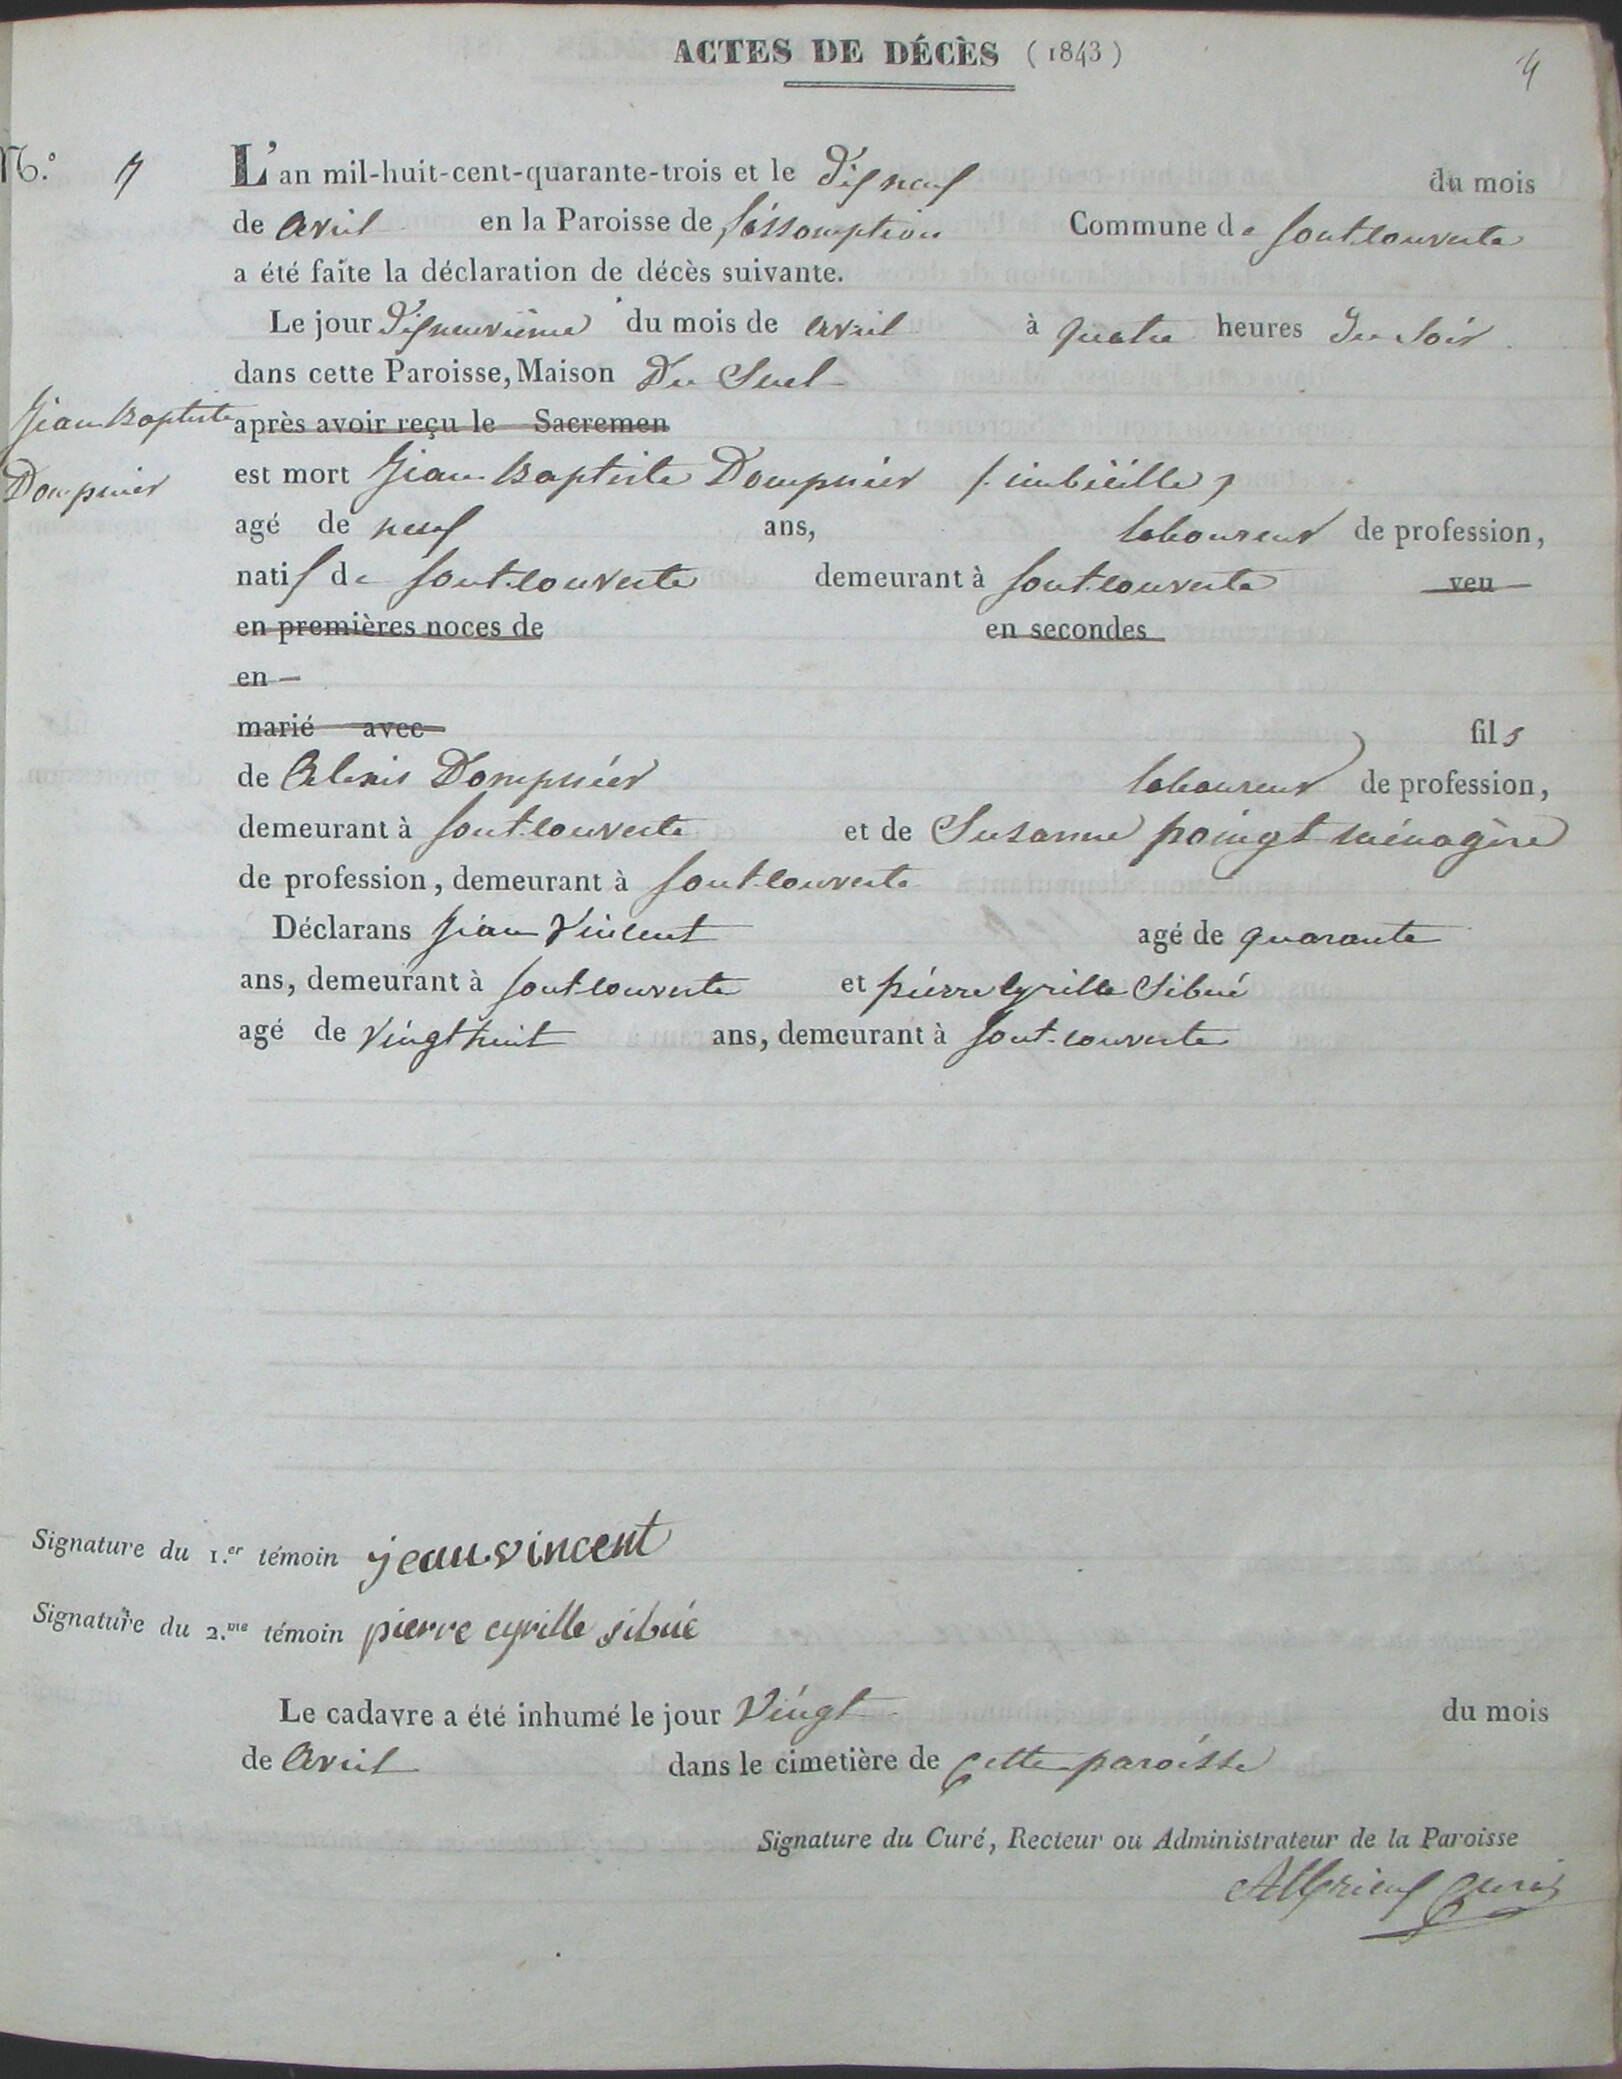 ACTES DE DÉCÈS (1843)
4
N.° 7 L'an mil-huit-cent-quarante-trois et le dixneuf du mois
de avril en la Paroisse de l'assomption Commune de fontcouverte
a été faite la déclaration de décès suivante.
Le jour dixneuvième du mois de avril à quatre heures du soir
dans cette Paroisse, Maison Du Suel
Jean Baptiste après avoir reçu le Sacremen
Dompnier est mort Jean Baptiste Dompnier (imbécille)
agé de neuf ans, laboureur de profession,
natif de fontcouverte demeurant à fontcouverte veu
en premières noces de en secondes
en
marié avec fils
de Alexis Dompnier laboureur de profession,
demeurant à fontcouverte et de Susanne poingt ménagère
de profession, demeurant à fontcouverte
Déclarans Jean Vincent agé de quarante
ans, demeurant à fontcouverte et pierre Cyrille Sibué
agé de Vingt huit ans, demeurant à font-couverte
Signature du 1.er témoin jean vincent
Signature du 2.me témoin pierre cyrille sibué
Le cadavre a été inhumé le jour Vingt du mois
de avril dans le cimetière de cette paroisse
Signature du Curé, Recteur ou Administrateur de la Paroisse
curé